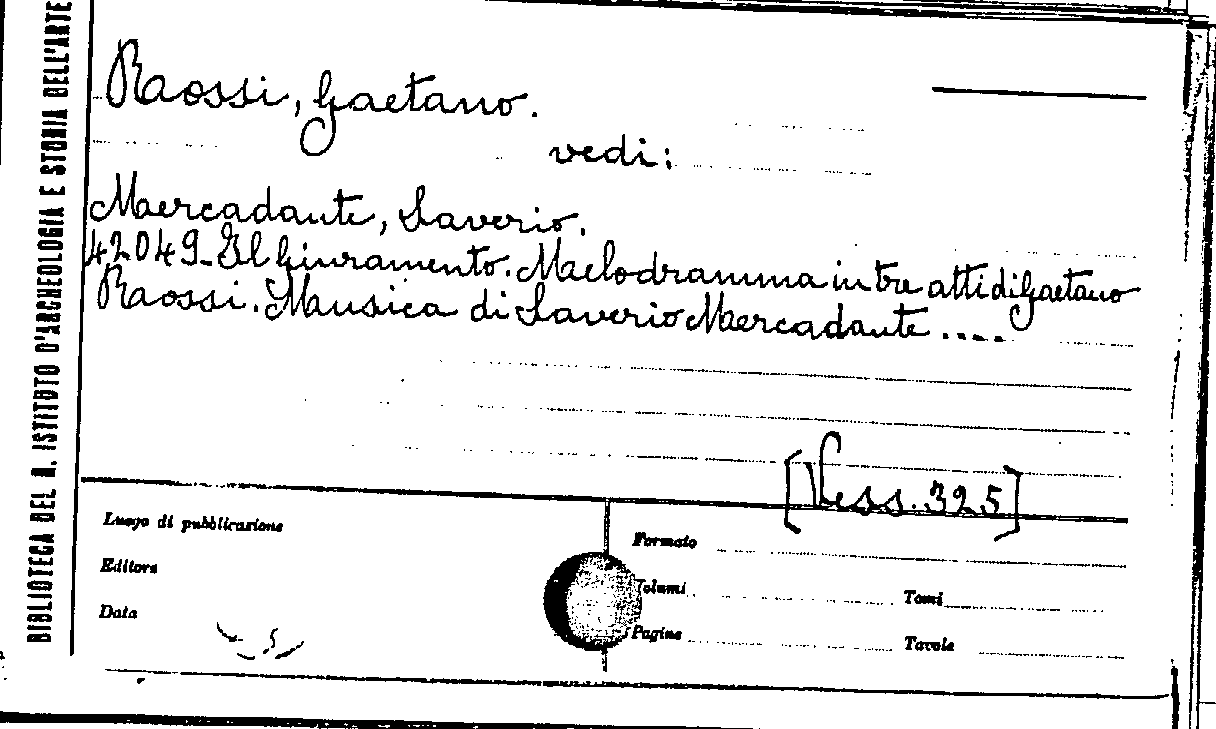 BIBLIOTECA DEL R. ISTITUTO D'ARCHEOLOGIA E STORIA DELL'ARTE
Rossi, Gaetano.
vedi:
Mercadante, Saverio.
42049_Il Giuramento. Melodramma in tre atti di Gaetano
Rossi. Musica di Saverio Mercadante ....
[Vess. 325]
Luogo di pubblicazione
Editore
Data
Formato
Volumi Tomi
Pagine Tavole